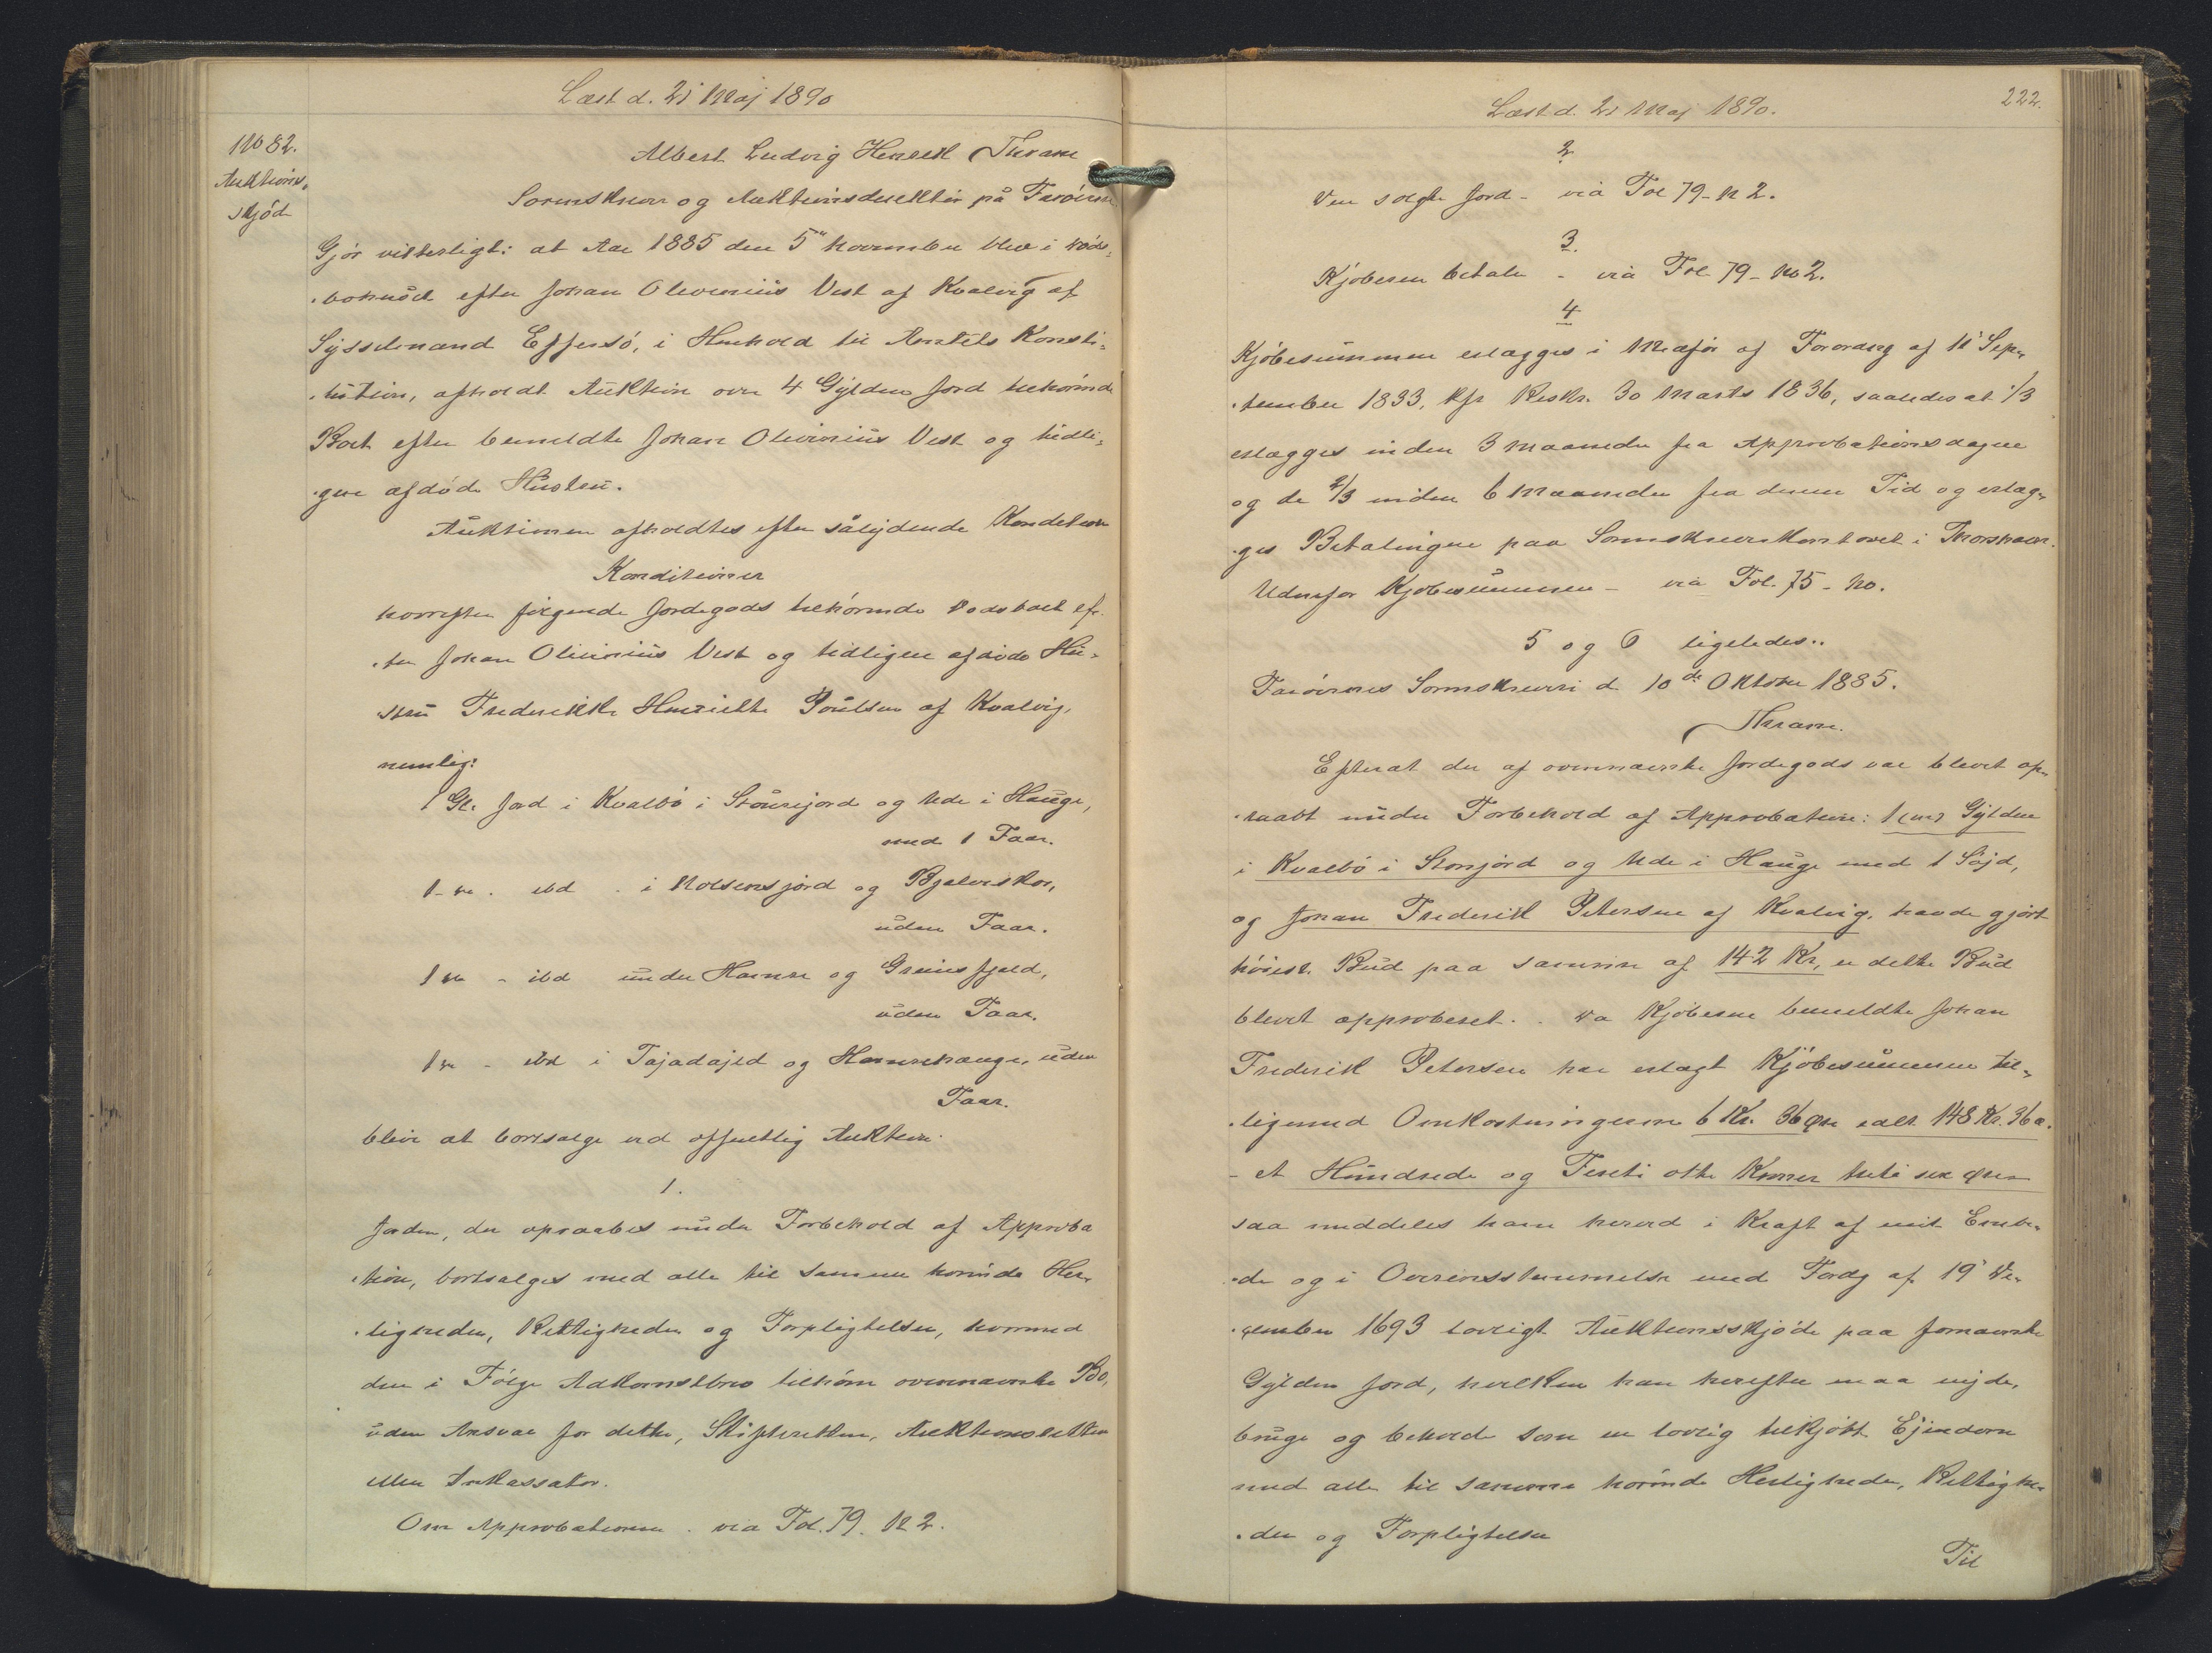 Læst d. 21 Maj 1890
No 82.
Auktions-
skjöd
Albert Ludvig Henrik Thrane
Sorenskriver og Auktionsdirektör på Færöerne
Gjör vitterligt: at Aar 1885 den 5" November blev i Döds-
bohuset efter Johan Olivenius Vest af Kvalvig af
Sysselmand Effersö, i Henhold til Amtets Konsti-
tution, afholdt Auktion over 4 Gylden Jord tilhörende
Boet efter bemeldte Johan Olivinius Vest og tidli-
gere afdöde Hustru.
Auktionen afholdtes efter sålydende Kondition
Konditioner
hvorefter fölgende Jordegods tilhörende Dödsboet ef-
ter Johan Olivinius Vest og tidligere afdöde Hu-
stru Frederikke Henriette Poulsen af Kvalvig,
nemlig:
1 Gl. Jord i Kvalbö i Stourejord og Ude i Hauge,
med 1 Faar.
1 - " - ibd - i Nolsensjord og
uden Faar.
1 " - ibd under Hamre og
uden Faar.
1 " - ibd i og Hamrehauge, uden
Faar.
blive at bortsælge ved offentlig Auktion.
1.
Jorden, der opraabes under Forbehold af Approba
tion, bortsælges med alle til samme hörende Her-
ligheder, Rettigheder og Forpligtelser, hvormed
den i Fölge Adkomstbrev tilhörer ovennævnte Bo,
uden Ansvar for dette, Skifteretten, Auktionsretten
eller Inkassator.
Om Approbationen - via Fol. 79. N 2.
Læst d. 21 Maj 1890.
222.
2
Den solgte Jord - via Fol 79 - N 2.
3.
Kjöberen betaler - via Fol 79 - No 2.
4
Kjöbesummen erlægges i Medför af Forordng af 11' Sep-
tember 1833, kfr Reskr. 30 Marts 1836, saaledes at 1/3
erlægges inden 3 Maaneder fra Approbationsdagen
og de 2/3 inden 6 Maaneder fra denne Tid og erlæg-
ges Betalingen paa Sorenskriverkontoret i Thorshavn.
Udenfor Kjöbesummen - via Fol. 75 - No.
5 og 6 ligeledes..
Færöernes Sorenskriveri d 10de Oktober 1885.
Thrane.
Efterat der af ovennævnte Jordegods var blevet op-
raabt under Forbehold af Approbation: 1 (en) Gylden
i Kvalbö i Storejord og Ude i Hauge med 1 Söjd,
og Johan Frederik Petersen af Kvalvig, havde gjört
höiest Bud paa samme af 142 Kr, er dette Bud
blevet approberet. . Da Kjöberen bemeldte Johan
Frederik Petersen har erlagt Kjöbesummen til-
ligemed Omkostningerne 6 Kr. 36 Öre ialt 148 Kr. 36 ö.
- et Hundrede og Fireti otte Kroner treti sex Öre -
saa meddeles ham herved i Kraft af mit Embe-
de og i Overensstemmelse med Fordg af 19' De-
cember 1693 lovligt Auktionsskjöde paa fornævnte
Gylden Jord, hvilken han herefter maa nyde,
bruge og beholde som en lovlig tilkjöbt Ejendom
med alle til samme hörende Herligheder, Rettighe-
der og Forpligtelser
Til